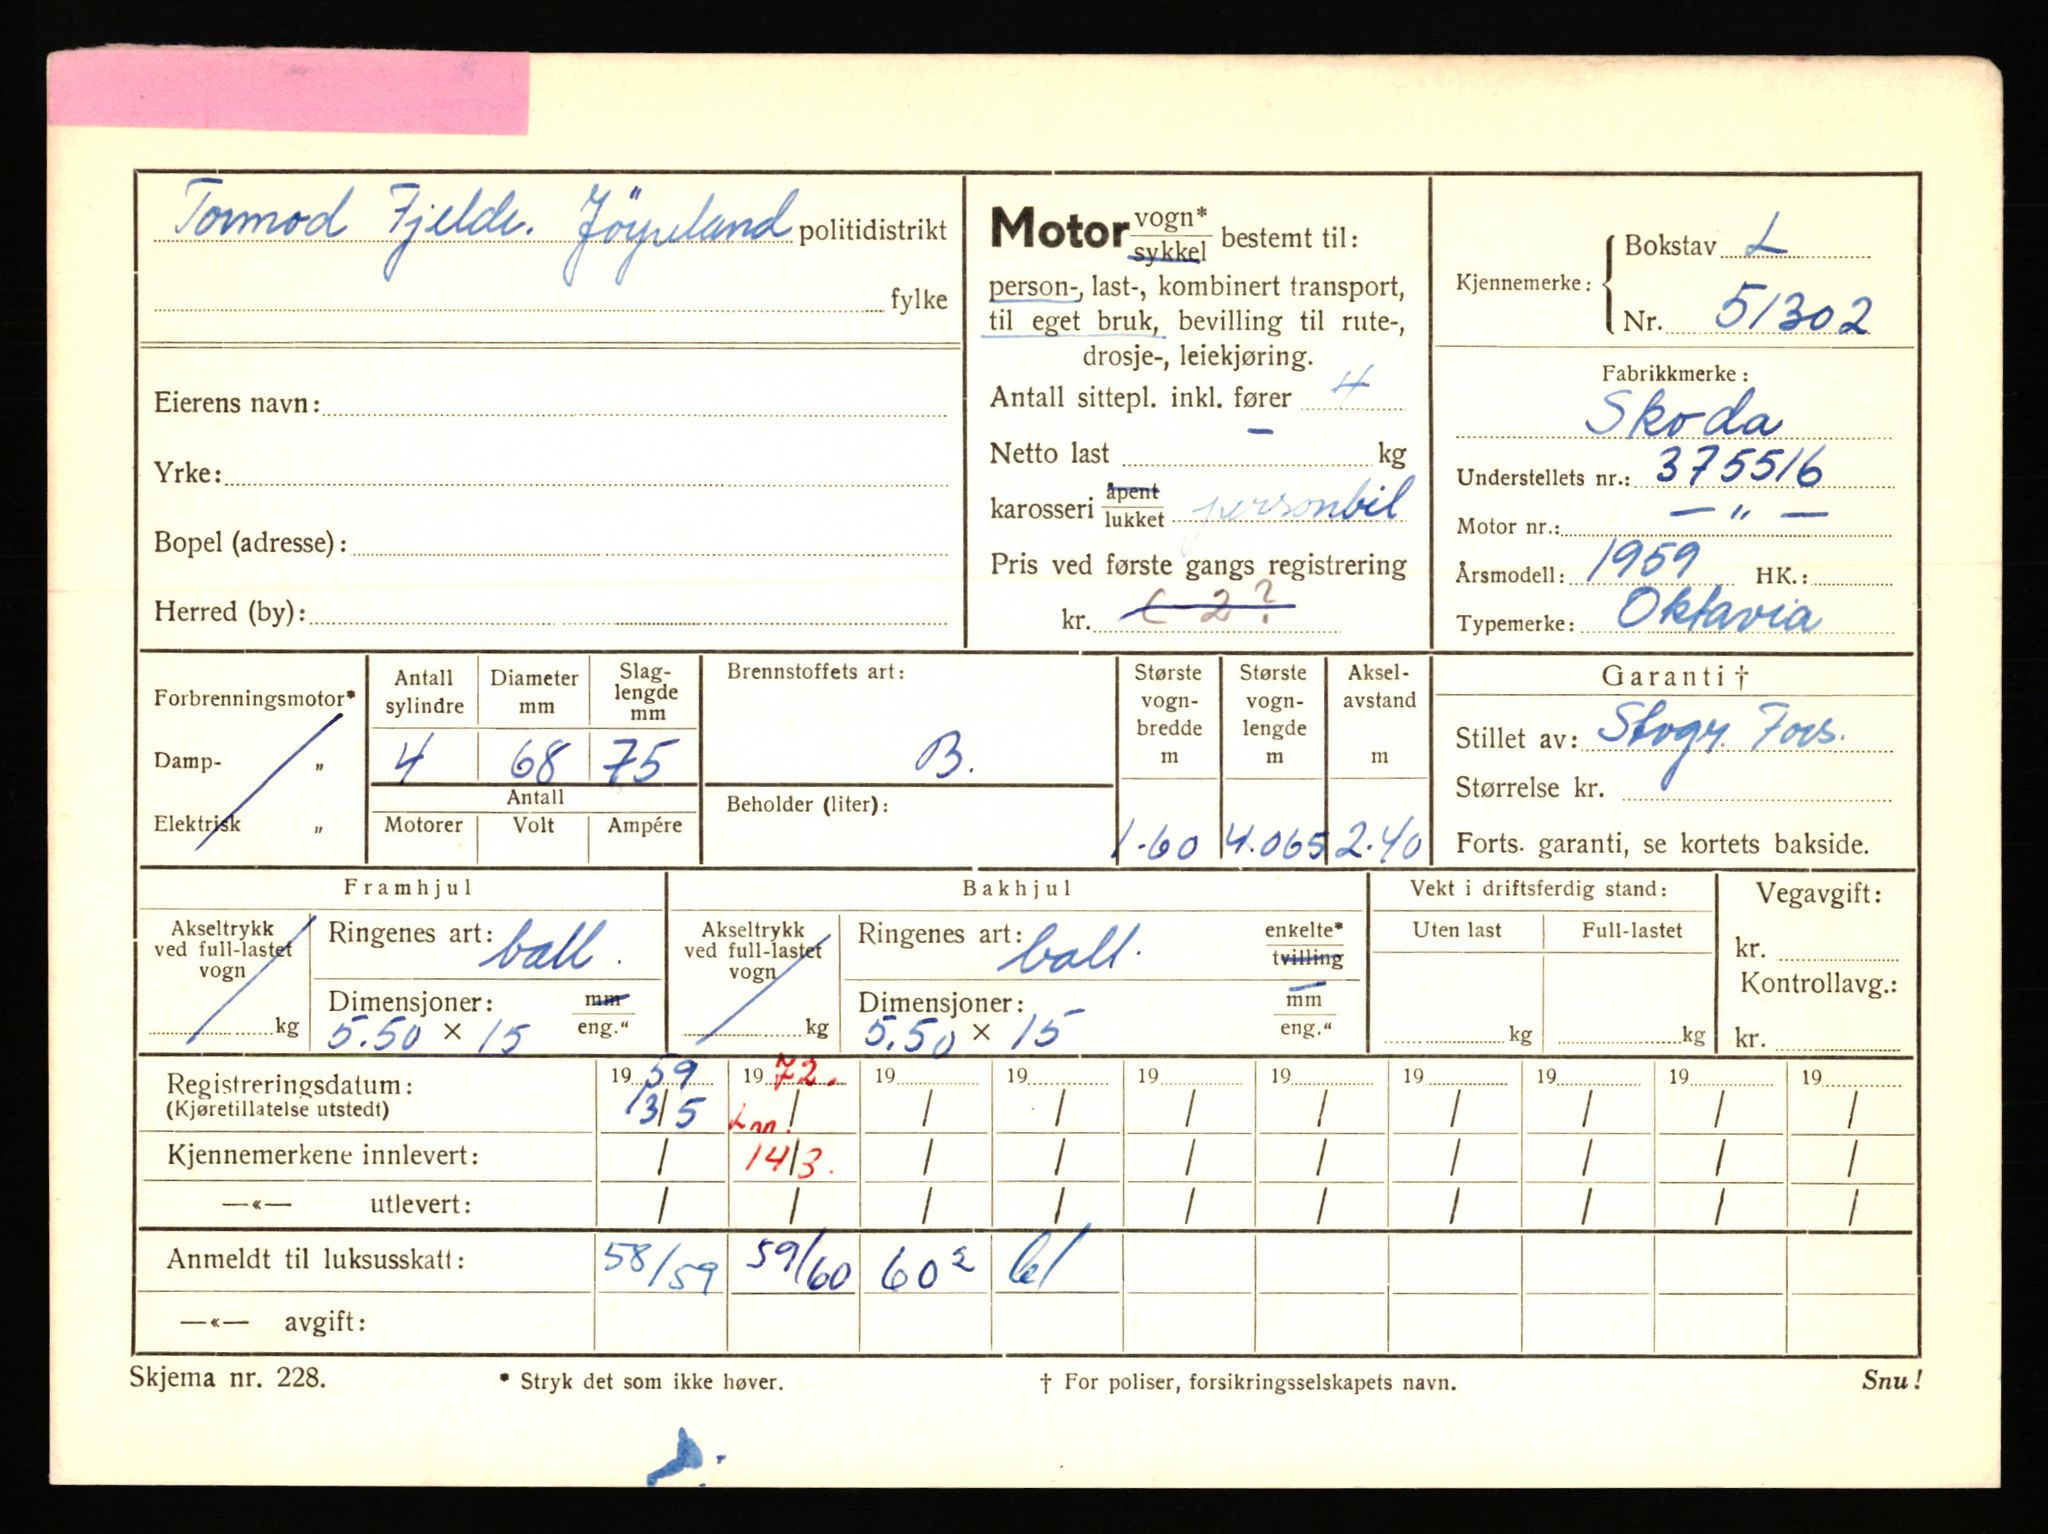 Tormod Fjelde. Jörpeland politidistrikt
fylke
Eierens navn:
Yrke:
Bopel (adresse):
Herred (by):
Motor vogn* sykkel bestemt til:
person-, last-, kombinert transport,
til eget bruk, bevilling til rute-,
drosje-, leiekjøring.
Antall sittepl. inkl. fører 4
Netto last – kg
karosseri åpent lukket personbil
Pris ved første gangs registrering
kr. C 2?
Kjennemerke: Bokstav L
Nr. 51302
Fabrikkmerke:
Skoda
Understellets nr.: 375516
Motor nr.: — " —
Årsmodell: 1959 HK.:
Typemerke: Oktavia
Forbrenningsmotor*
Damp- „
Elektrisk „
Antall sylindre 4
Diameter mm 68
Slag-lengde mm 75
Antall
Motorer Volt Ampére
Brennstoffets art:
B.
Beholder (liter):
Største vogn-bredde m 1.60
Største vogn-lengde m 4.065
Aksel-avstand m 2.40
Garanti †
Stillet av: Stvgr. Fors.
Størrelse kr.
Forts. garanti, se kortets bakside.
Framhjul
Akseltrykk ved full-lastet vogn kg
Ringenes art: ball.
Dimensjoner: mm eng."
5.50 × 15
Bakhjul
Akseltrykk ved full-lastet vogn kg
Ringenes art: ball. enkelte* tvilling
Dimensjoner: mm eng."
5.50 × 15
Vekt i driftsferdig stand:
Uten last Full-lastet
kg kg
Vegavgift:
kr.
Kontrollavg.:
kr.
Registreringsdatum: 19 59 19 72. 19 19 19 19 19 19 19 19
(Kjøretillatelse utstedt) 13/5 / / / / / / / / /
Kjennemerkene innlevert: / 14/3. / / / / / / / /
—«— utlevert: / / / / / / / / / /
Anmeldt til luksusskatt: 58/59 59/60 60² 61
—«— avgift:
Skjema nr. 228. * Stryk det som ikke høver. † For poliser, forsikringsselskapets navn. Snu!